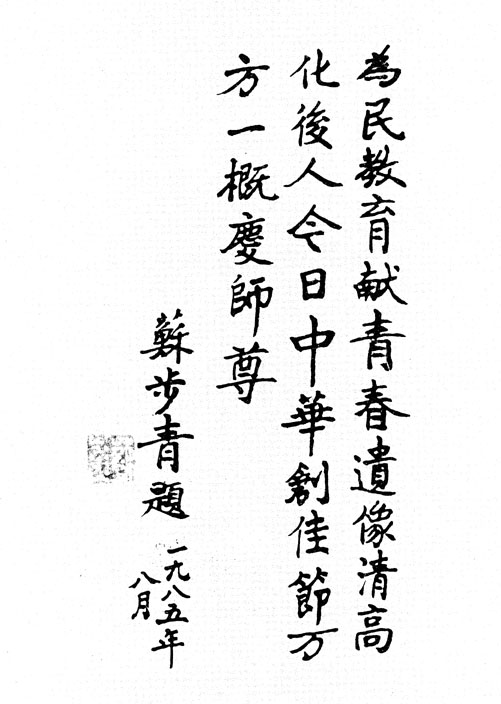 為民教育献青春遺像清高
化後人今日中華創佳節万
方一概慶師尊
蘇步青題
一九八五年
八月